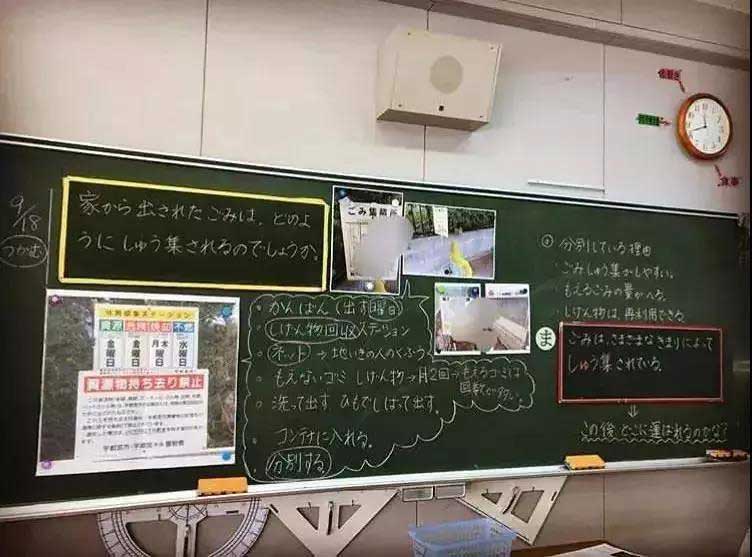 9/18
つかむ
家から出されたごみは、どのよ
うにしゅう集されるのでしょうか。
ごみ集積所
分別収集ステーション
資源
不燃
金曜日
金曜日
月 木 曜日
水曜日
資源物持ち去り禁止
・かんばん(出す曜日)
・しげん物回収ステーション
・ネット→地いきの人のくふう
・もえないゴミ しげん物→月2回→もえるゴミは
回数が
・洗って出す ひもでしばって出す。
・コンテナに入れる。
・分別する。
分別している理由
・ごみしゅう集がしやすい。
・もえるごみの量がへる。
・しげん物は、再利用できる。
ま
ごみは、さまざまなきまりによって
しゅう集されている。
⇓
この後どこに運ばれるのかな?